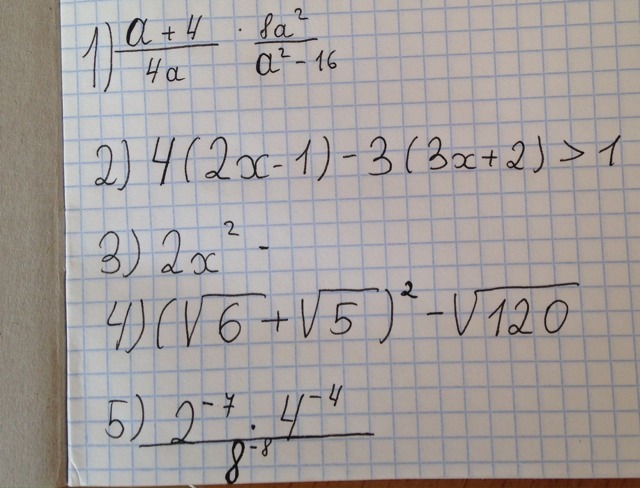 1) (a + 4)/(4a) · (8a²)/(a² - 16)
2) 4(2x - 1) - 3(3x + 2) > 1
3) 2x² -
4) (√6 + √5)² - √120
5) (2⁻⁷ · 4⁻⁴)/(8⁻⁸)